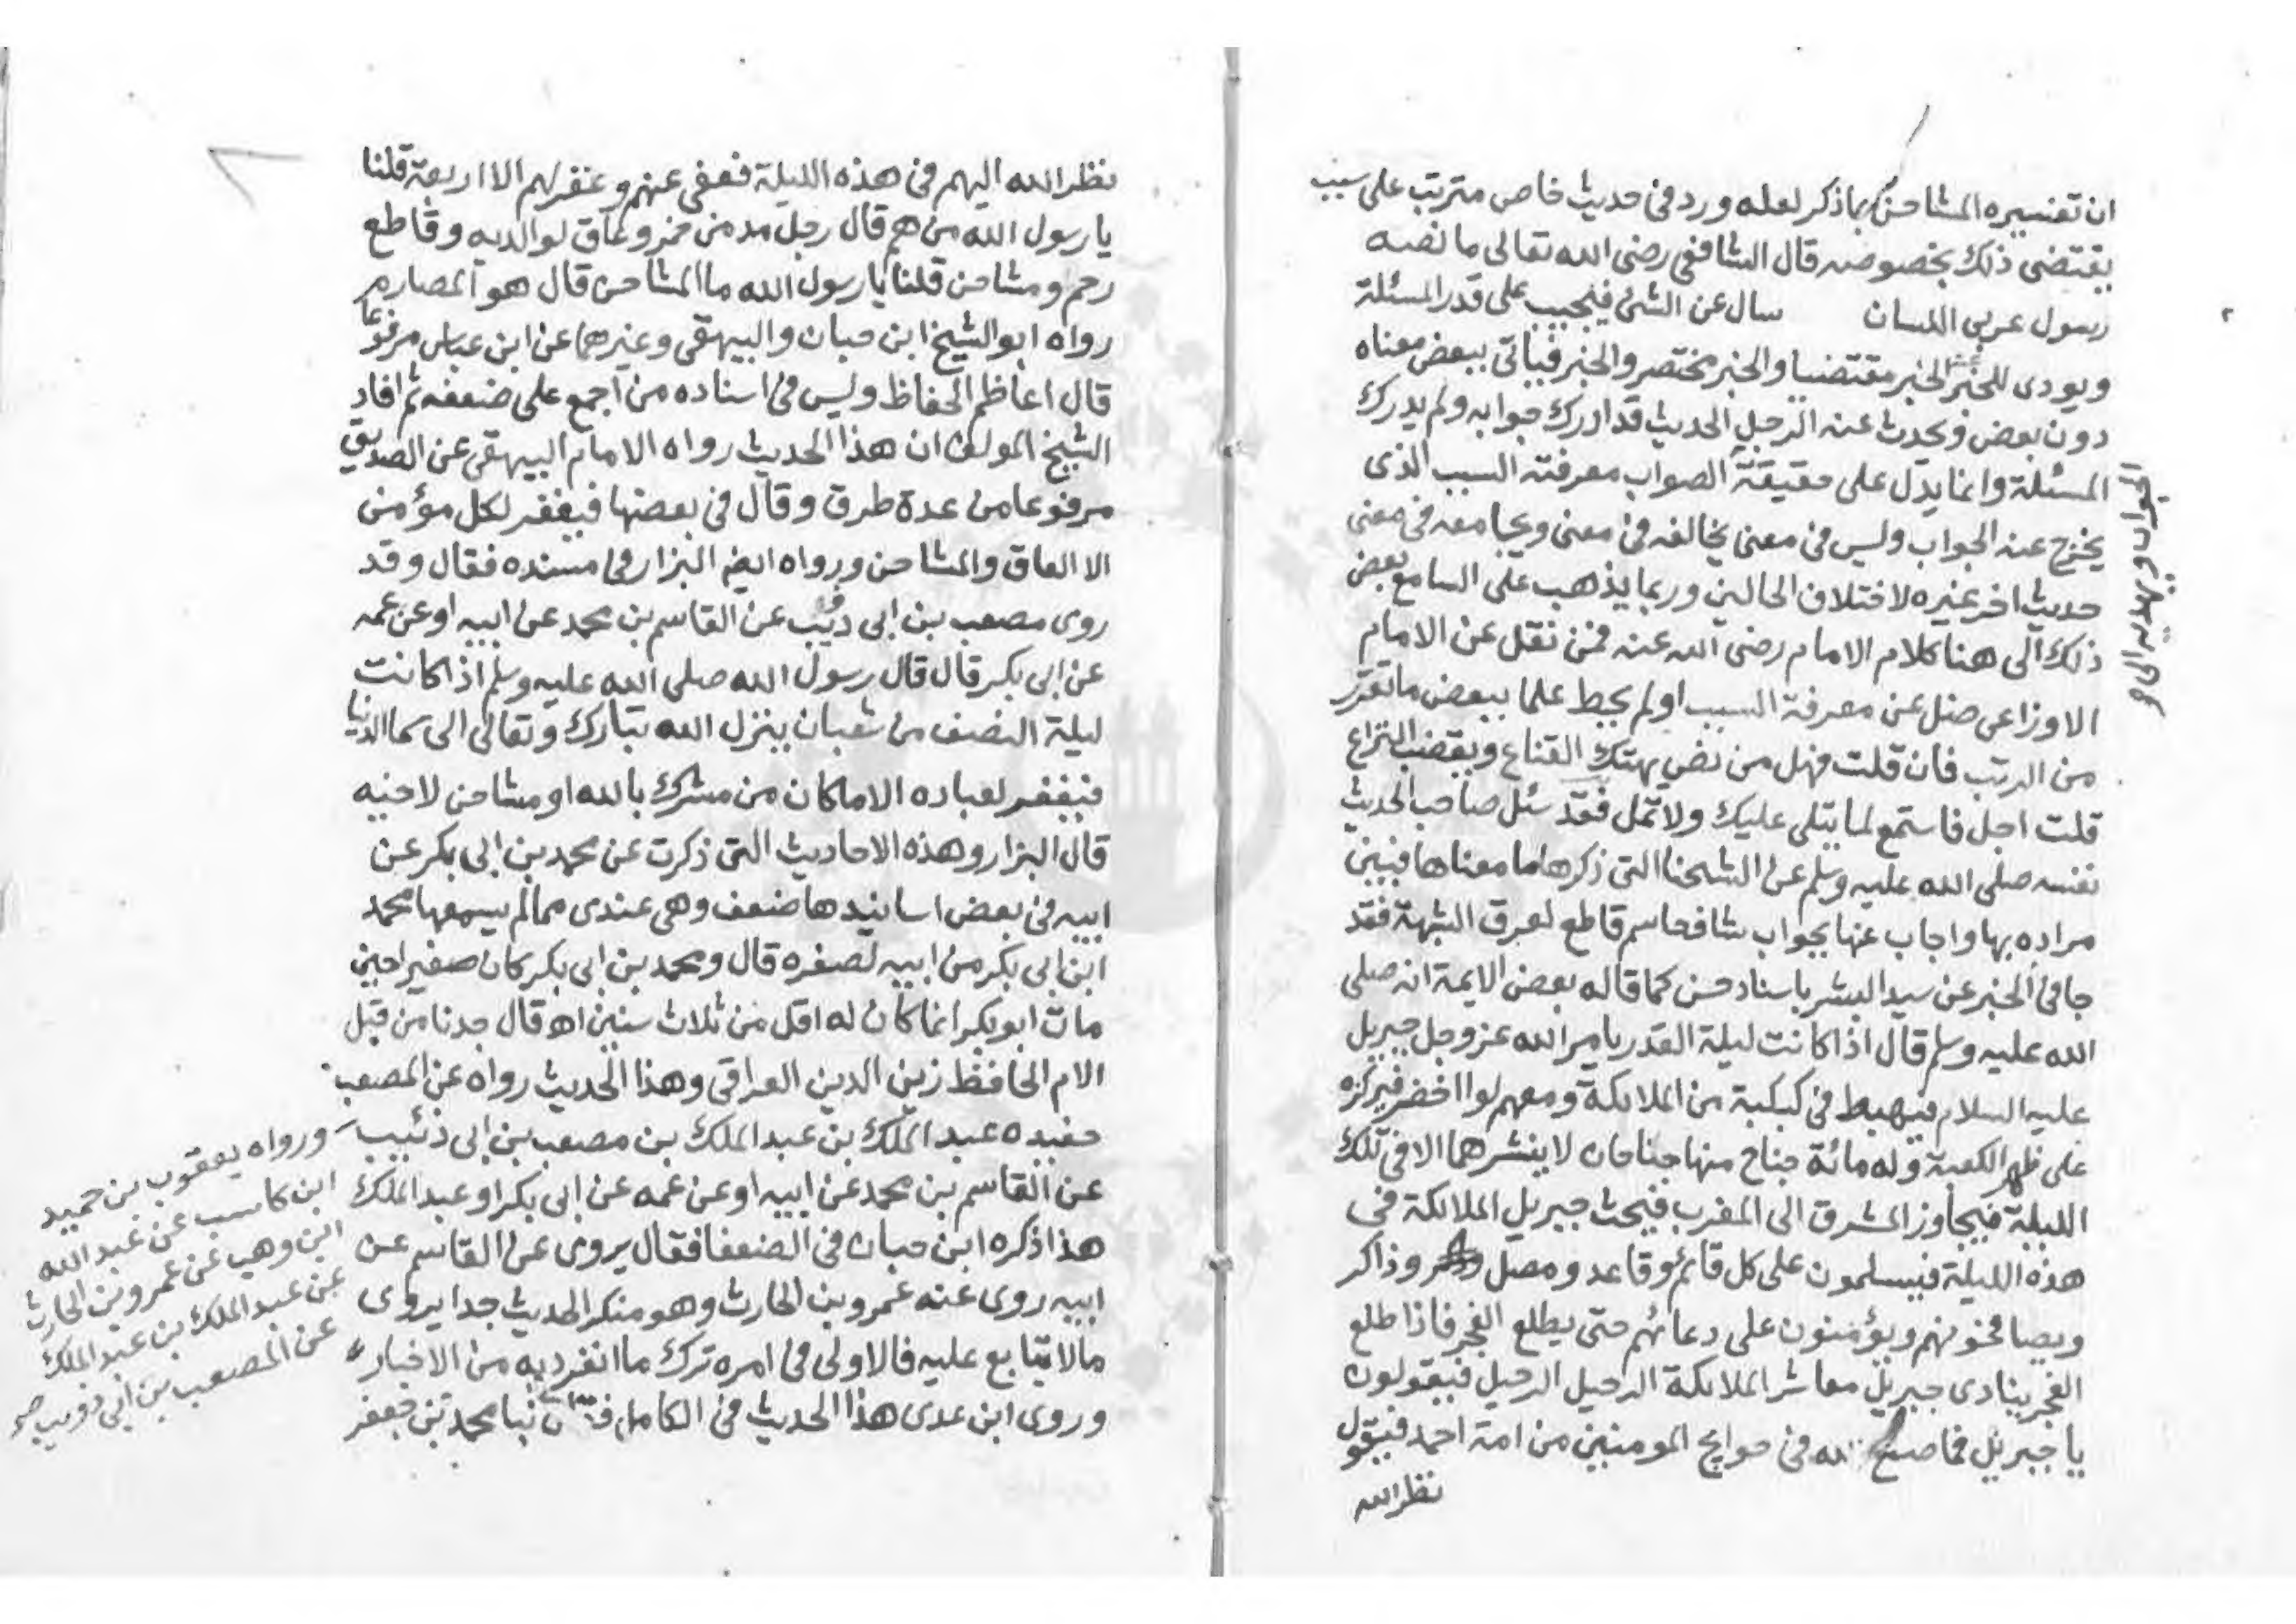 ان تفسيره المشاحن بما ذكر لعله ورد فى حديث خاص مترتب على سبب
يقتضى ذلك بخصوصه قال الشافعى رضى الله تعالى ما نصه
رسول عربى اللسان سال عن الشئ فيجيب على قدر المسئلة
ويودى المخبر الخبر مقتضبا والخبر مختصر والخبر فياتى ببعض معناه
دون بعض ويحدث عنه الرجل الحديث قد ادرك جوابه ولم يدرك
المسئلة وانما يدل على حقيقة الصواب معرفته السبب الذى
يخرج عنه الجواب وليس فى معنى يخالفه فى معنى ويجامعه فى معنى
حديث اخر غيره لاختلاف الحالين وربما يذهب على السامع بعض
ذلك الى هنا كلام الامام رضى الله عنه فمن نقل عن الامام
الاوزاعى ضل عن معرفة السبب او لم يحط علما ببعض ما تقرر
من الرتب فان قلت فهل من نص يهتك القناع ويقضب النزاع
قلت اجل فاستمع لما يتلى عليك ولا تمل فقد سئل صاحب الحديث
نفسه صلى الله عليه وسلم عن الشحنا التى ذكرها ما معناها فبين
مراده بها واجاب عنها بجواب شاف حاسم قاطع لعرق الشبهة فقد
جا فى الخبر عن سيد البشر باسناد حسن كما قاله بعض الايمة انه صلى
الله عليه وسلم قال اذا كانت ليلة القدر يامر الله عز وجل جبريل
عليه السلام فيهبط فى كبكبة من الملائكة ومعهم لوا اخضر فيركزه
على ظهر الكعبة وله مائة جناح منها جناحان لا ينشرهما الا فى تلك
الليلة فيجاوز المشرق الى المغرب فيحث جبريل الملائكة فى
هذه الليلة فيسلمون على كل قائم وقاعد ومصل وذاكر
ويصافحونهم ويؤمنون على دعائهم حتى يطلع الفجر فاذا طلع
الفجر ينادى جبريل معاشر الملائكة الرحيل الرحيل فيقولون
يا جبريل فما صنع الله فى حوايج المومنين من امة احمد فيقول
نظر الله
نظر الله اليهم فى هذه الليلة فعفى عنهم وغفر لهم الا اربعة قلنا
يا رسول الله من هم قال رجل مدمن خمر وعاق لوالديه وقاطع
رحم ومشاحن قلنا يا رسول الله ما المشاحن قال هو المصارم
رواه ابو الشيخ ابن حبان والبيهقى وغيرهما عن ابن عباس مرفوعا
قال اعاظم الحفاظ وليس فى اسناده من اجمع على ضعفه ثم افاد
الشيخ المولف ان هذا الحديث رواه الامام البيهقى عن الصديق
مرفوعا من عدة طرق وقال فى بعضها فيغفر لكل مؤمن
الا العاق والمشاحن ورواه ايضا البزار فى مسنده فقال وقد
روى مصعب بن ابى ذئب عن القاسم بن محمد عن ابيه او عن عمه
عن ابى بكر قال قال رسول الله صلى الله عليه وسلم اذا كانت
ليلة النصف من شعبان ينزل الله تبارك وتعالى الى سما الدنيا
فيغفر لعباده الا ما كان من مشرك بالله او مشاحن لاخيه
قال البزار وهذه الاحاديث التى ذكرت عن محمد بن ابى بكر عن
ابيه فى بعض اسانيدها ضعف وهى عندى مما لم يسمعها محمد
ابن ابى بكر من ابيه لصغره قال ومحمد بن ابى بكر كان صغيرا حين
مات ابو بكر انما كان له اقل من ثلاث سنين اه قال جدنا من قبل
الام الحافظ زين الدين العراقى وهذا الحديث رواه عن المصعب
حفيده عبد الملك بن عبد الملك بن مصعب بن ابى ذئيب
عن القاسم بن محمد عن ابيه او عن عمه عن ابى بكر او عبد الملك
هذا ذكره ابن حبان فى الضعفا فقال يروى عن القاسم عن
ابيه روى عنه عمرو بن الحارث وهو منكر الحديث جدا يروى
مالا يتابع عليه فالاولى فى امره ترك ما انفرد به من الاخبار
وروى ابن عدى هذا الحديث فى الكامل محمد بن جعفر
ورواه يعقوب بن حميد
ابن كاسب عن عبد الله
ابن وهب عن عمرو بن الحارث
عن عبد الملك بن عبد الملك
عن المصعب بن ابى ذويب صح